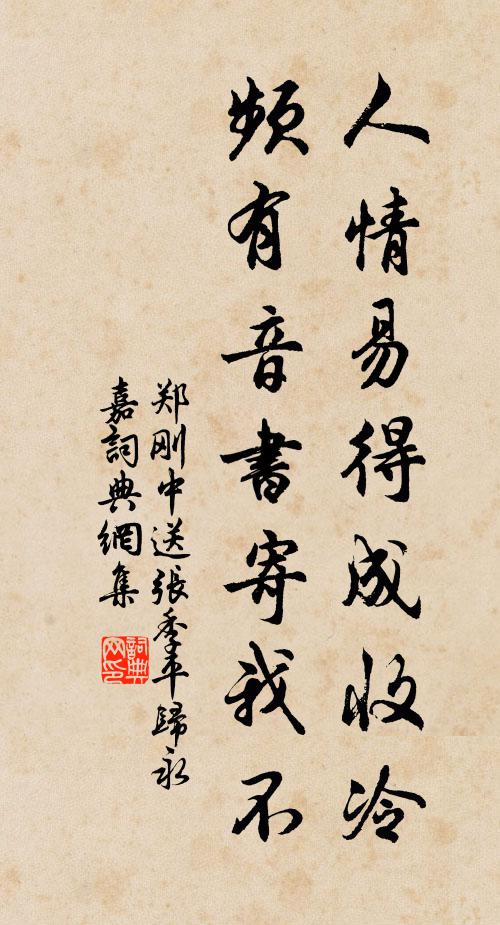 人情易得成收冷
频有音書寄我不
郑刚中送張季平歸永
嘉詞典網集
詞典
网印